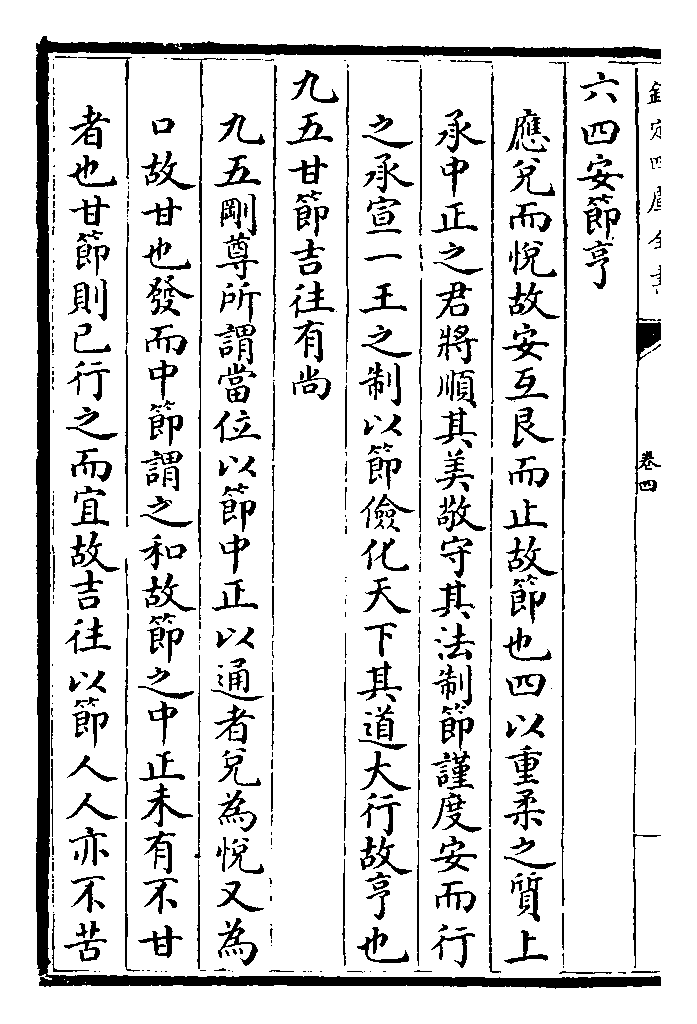 欽定四庫全書
卷四
六四安節亨
應兌而悅故安互艮而止故節也四以重柔之質上
承中正之君將順其美敬守其法制節謹度安而行
之承宣一王之制以節儉化天下其道大行故亨也
九五甘節吉往有尚
九五剛尊所謂當位以節中正以通者兌為悅又為
口故甘也發而中節謂之和故節之中正未有不甘
者也甘節則已行之而宜故吉往以節人人亦不苦